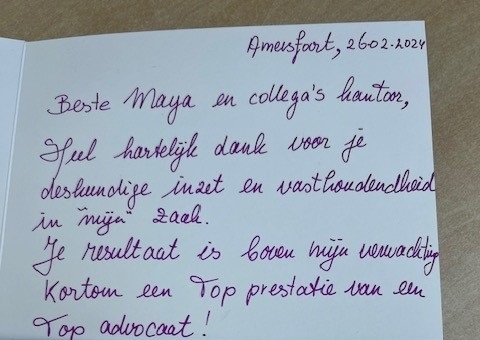 Amersfoort, 26.02.2024
Beste Maya en collega's kantoor,
Heel hartelijk dank voor je
deskundige inzet en vasthoudendheid
in "mijn" zaak.
Je resultaat is boven mijn verwachting
Kortom een Top prestatie van een
Top advocaat!